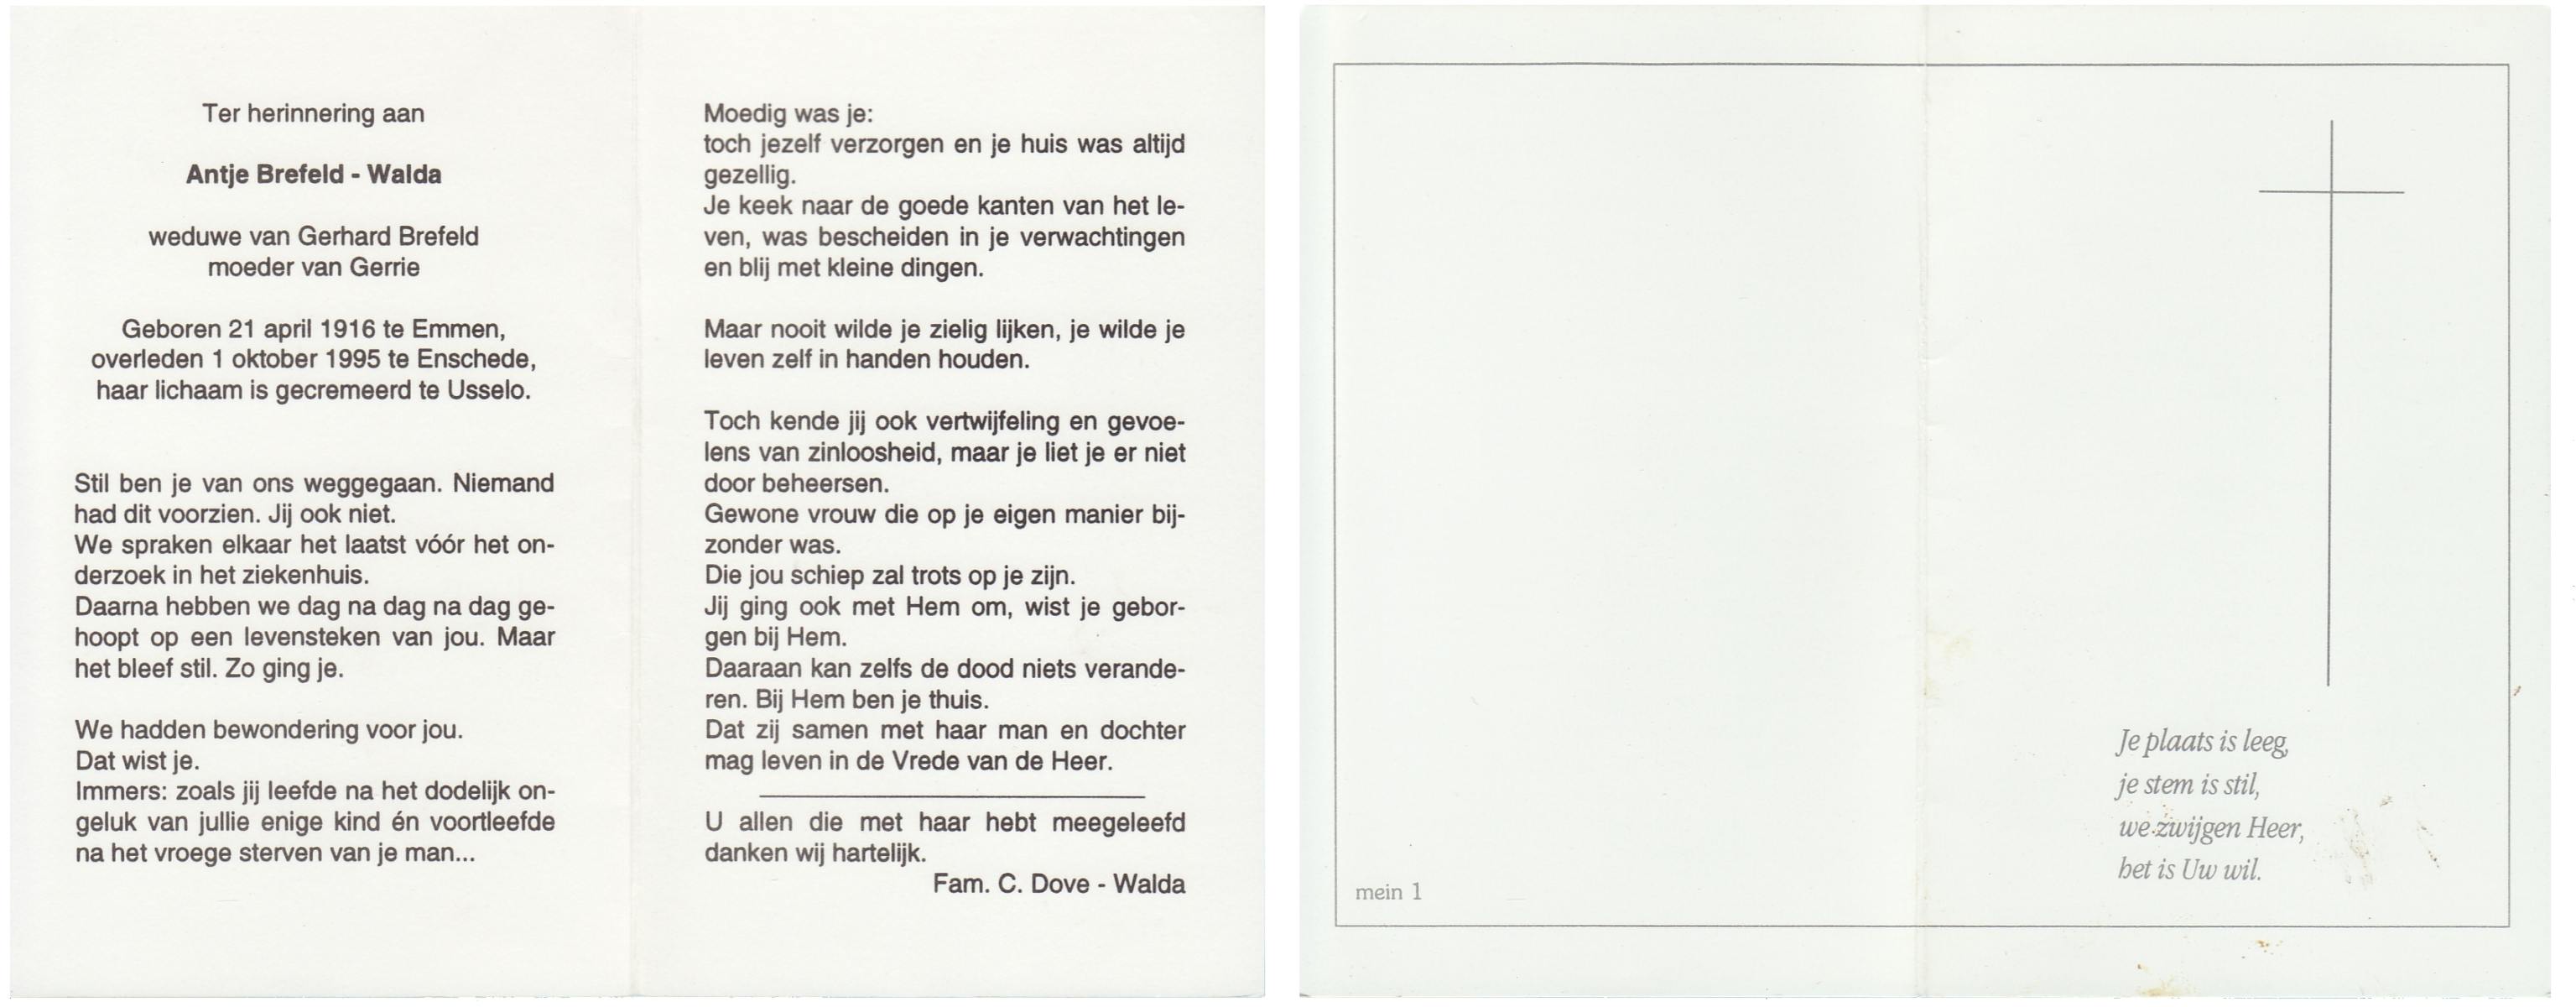 Ter herinnering aan
Antje Brefeld - Walda
weduwe van Gerhard Brefeld
moeder van Gerrie
Geboren 21 april 1916 te Emmen,
overleden 1 oktober 1995 te Enschede,
haar lichaam is gecremeerd te Usselo.
Stil ben je van ons weggegaan. Niemand
had dit voorzien. Jij ook niet.
We spraken elkaar het laatst vóór het on-
derzoek in het ziekenhuis.
Daarna hebben we dag na dag na dag ge-
hoopt op een levensteken van jou. Maar
het bleef stil. Zo ging je.
We hadden bewondering voor jou.
Dat wist je.
Immers: zoals jij leefde na het dodelijk on-
geluk van jullie enige kind én voortleefde
na het vroege sterven van je man...
Moedig was je:
toch jezelf verzorgen en je huis was altijd
gezellig.
Je keek naar de goede kanten van het le-
ven, was bescheiden in je verwachtingen
en blij met kleine dingen.
Maar nooit wilde je zielig lijken, je wilde je
leven zelf in handen houden.
Toch kende jij ook vertwijfeling en gevoe-
lens van zinloosheid, maar je liet je er niet
door beheersen.
Gewone vrouw die op je eigen manier bij-
zonder was.
Die jou schiep zal trots op je zijn.
Jij ging ook met Hem om, wist je gebor-
gen bij Hem.
Daaraan kan zelfs de dood niets verande-
ren. Bij Hem ben je thuis.
Dat zij samen met haar man en dochter
mag leven in de Vrede van de Heer.
U allen die met haar hebt meegeleefd
danken wij hartelijk.
Fam. C. Dove - Walda
mein 1
Je plaats is leeg,
je stem is stil,
we zwijgen Heer,
het is Uw wil.